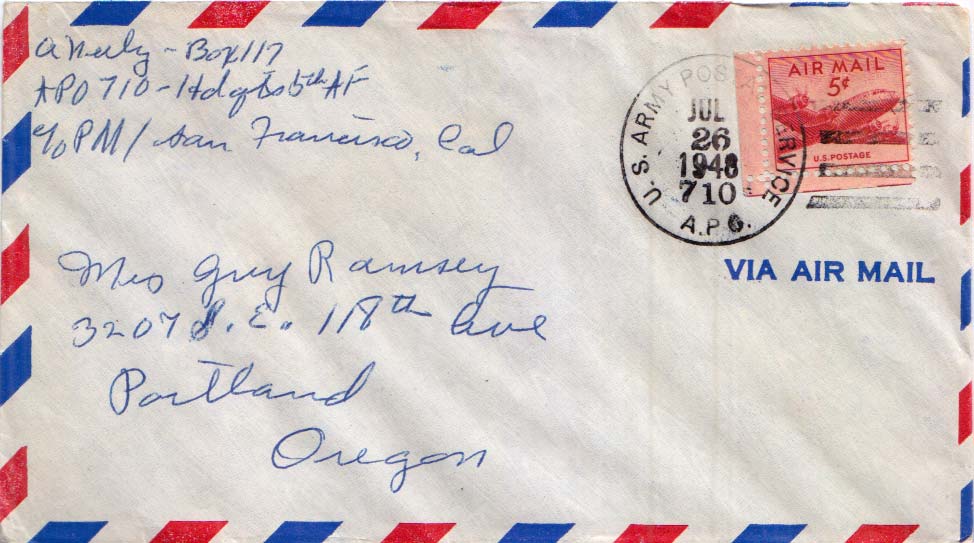 A Neely - Box 117
APO 710 - Hdqts 5th AF
c/o PM / San Francisco, Cal
U.S. ARMY POSTAL SERVICE
JUL
26
1948
710
A.P.O.
AIR MAIL
5¢
U.S. POSTAGE
VIA AIR MAIL
Mrs Guy Ramsey
3207 S.E. 118th Ave
Portland
Oregon